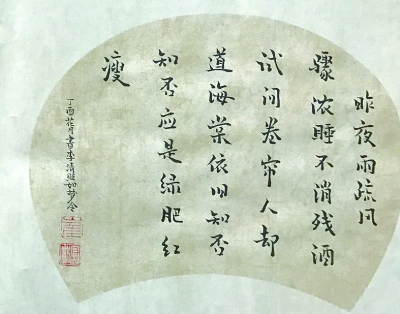 昨夜雨疏风
骤浓睡不消残酒
试问卷帘人却
道海棠依旧知否
知否应是绿肥红
瘦
丁酉花月书李清照如梦令